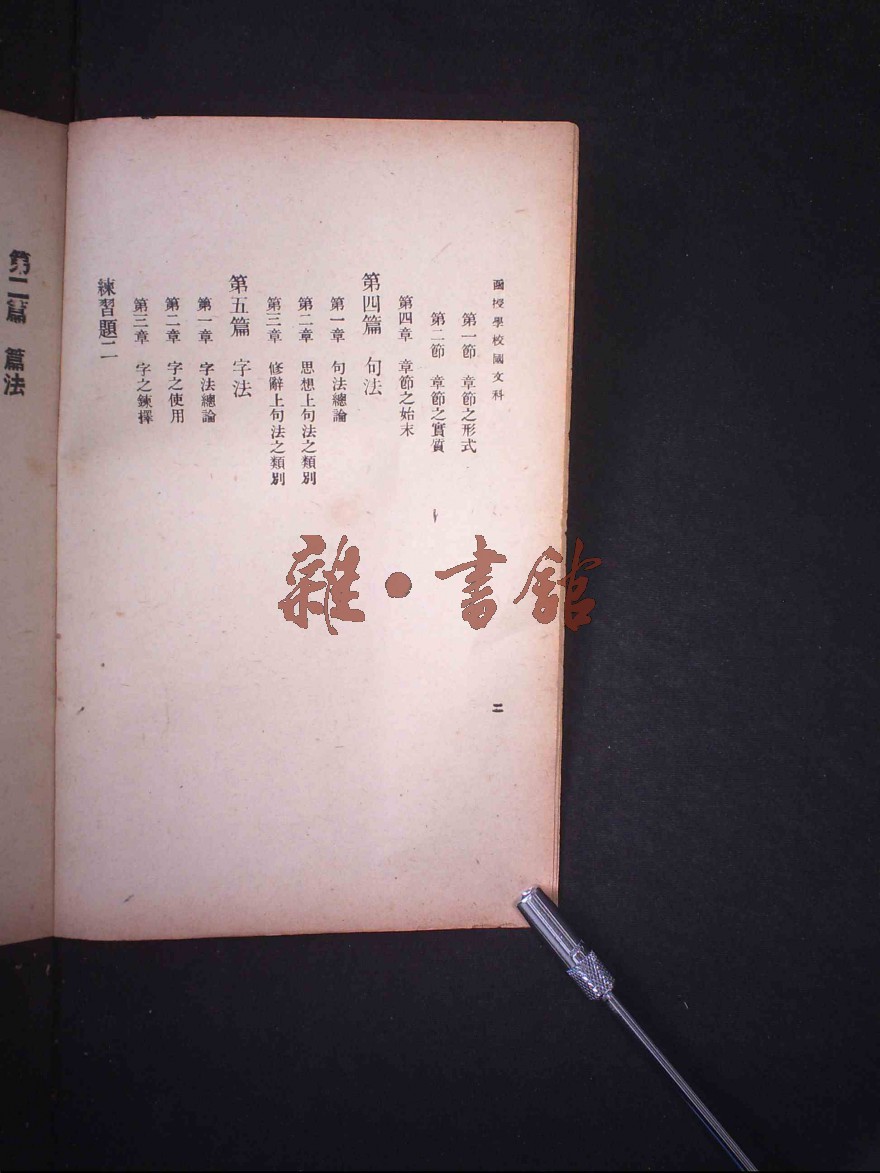 函授學校國文科
第一節　章節之形式
第二節　章節之實質
第四章　章節之始末
第四篇　句法
第一章　句法總論
第二章　思想上句法之類別
第三章　修辭上句法之類別
第五篇　字法
第一章　字法總論
第二章　字之使用
第三章　字之鍊擇
練習題二
二
第二篇　篇法
雜・書館